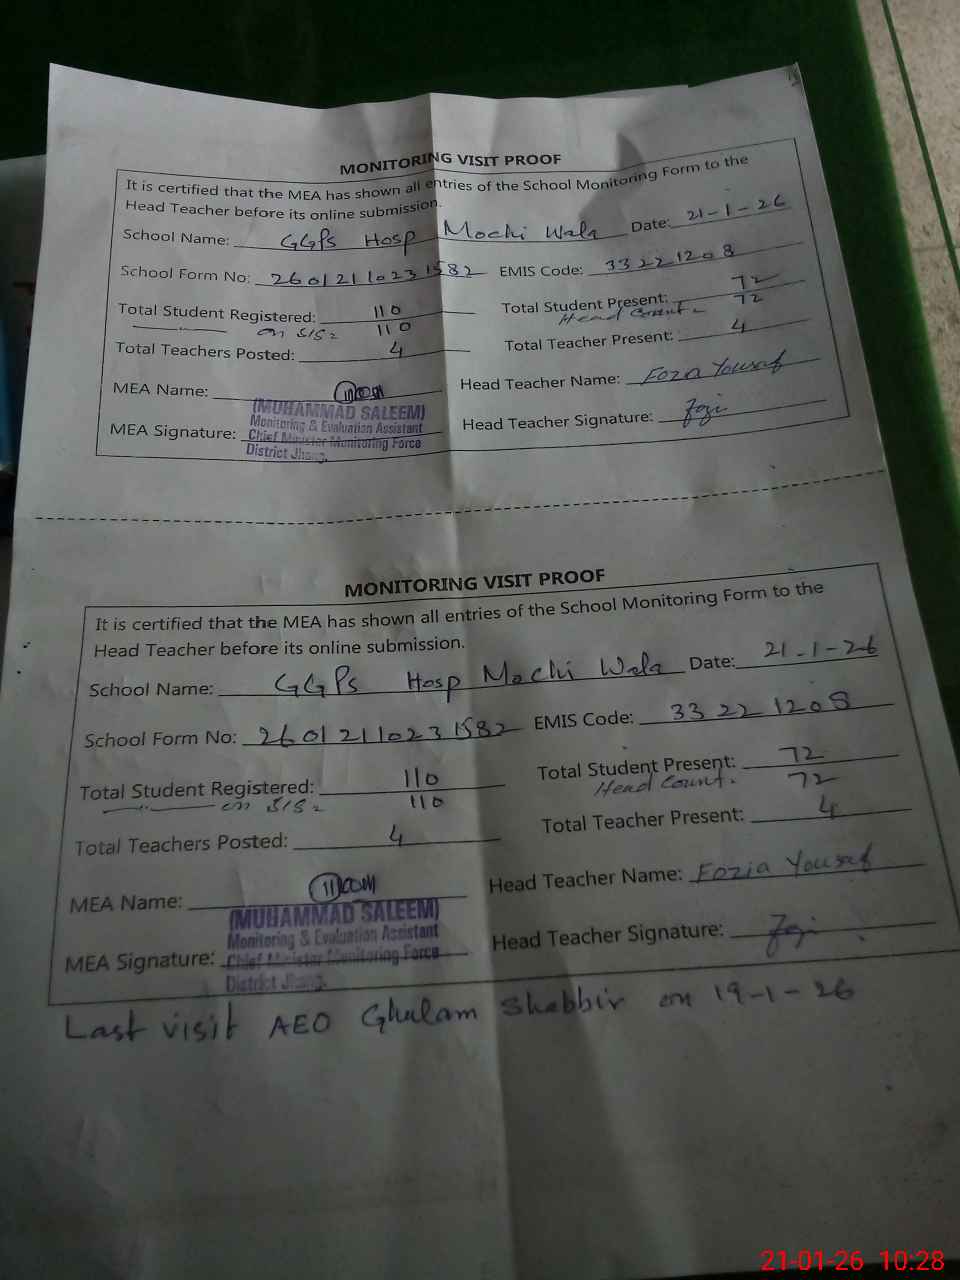 MONITORING VISIT PROOF
It is certified that the MEA has shown all entries of the School Monitoring Form to the
Head Teacher before its online submission.
School Name: GGPS Hosp Mochi Wala Date: 21-1-26
School Form No: 26012110231582 EMIS Code: 33221208
Total Student Registered: 110 Total Student Present: 72
on SIS = 110 Head Count - 72
Total Teachers Posted: 4 Total Teacher Present: 4
MEA Name: Head Teacher Name: Fozia Yousaf
(MUHAMMAD SALEEM)
Monitoring & Evaluation Assistant
MEA Signature: Chief Minister Monitoring Force Head Teacher Signature:
District Jhang.
MONITORING VISIT PROOF
It is certified that the MEA has shown all entries of the School Monitoring Form to the
Head Teacher before its online submission.
School Name: GGPS Hosp Mochi Wala Date: 21-1-26
School Form No: 26012110231582 EMIS Code: 33221208
Total Student Registered: 110 Total Student Present: 72
on SIS = 110 Head Count - 72
Total Teachers Posted: 4 Total Teacher Present: 4
MEA Name: Head Teacher Name: Fozia Yousaf
(MUHAMMAD SALEEM)
Monitoring & Evaluation Assistant
MEA Signature: Chief Minister Monitoring Force Head Teacher Signature:
District Jhang.
Last visit AEO Ghulam Shabbir on 19-1-26
21-01-26 10:28